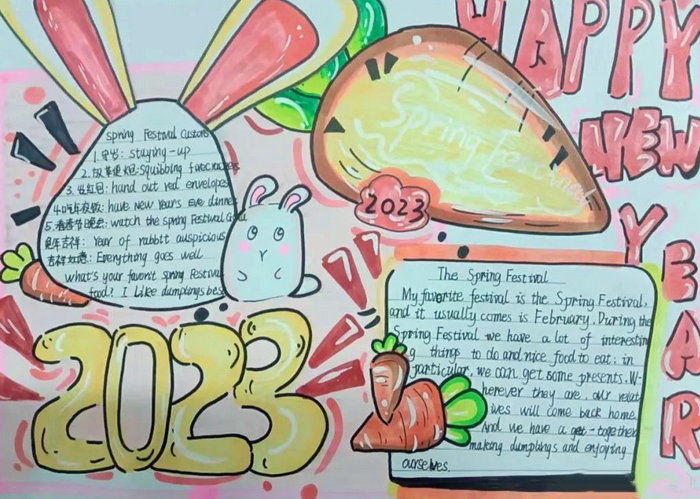 HAPPY
NEW
YEAR
Spring Festival
2023
Spring Festival Customs
1.守岁: staying-up
2.放鞭炮:Squibbing firecrackers
3.发红包: hand out red envelopes
4.吃年夜饭: have New Year's Eve dinner
5.看春节晚会: watch the spring Festival Gala
兔年吉祥: Year of rabbit auspicious
吉祥如意: Everything goes well
what's your favorit spring Festival
food? I Like dumplings best
2023
The Spring Festival
My favorite festival is the Spring Festival,
and it usually comes is February. During the
Spring Festival we have a lot of interestin
g things to do and nice food to eat. in
particular, we can get some presents. W-
herever they are, our relat
ives will come back home.
And we have a get-together
making dumplings and enjoying
ourselves.